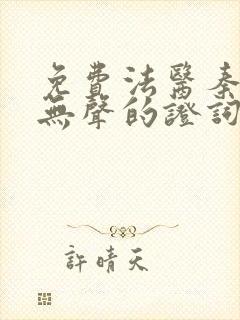 免費法醫秦
無聲的證詞
許晴天